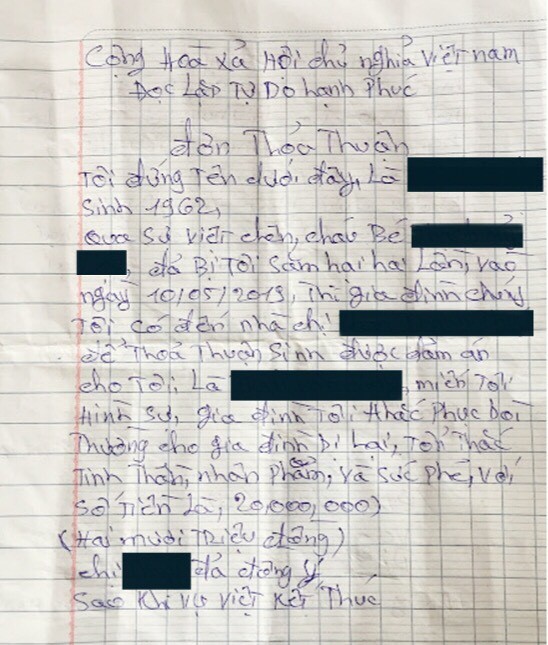 Cộng Hoà xả Hội chủ nghỉa việt nam
Đọc Lập Tự Do hạnh phúc
đơn Thỏa Thuận
Tôi đứng Tên dưới đây, Là
Sinh 1962,
Qua Sự việt chên, cháu Bé
, đả Bị Tôi Sâm hai hai Lần, vào
ngày 10/05/2019, Thì gia đình chúng
Tôi có đến nhà chị
để Thoả Thuận Sinh được dảm án
cho Tôi Là , miển Tội
Hình Sự, gia đình Tôi khắc Phục bồi
Thường cho gia đình Bị hại, Tổn Thắc
Tinh Thần, nhân Phẩm, và Sức Phẻ, với
Số Tiền Là, 20,000,000)
(Hai mươi Triệu đồng)
chị đả đồng ý
Sao khi vụ việt kết Thúc